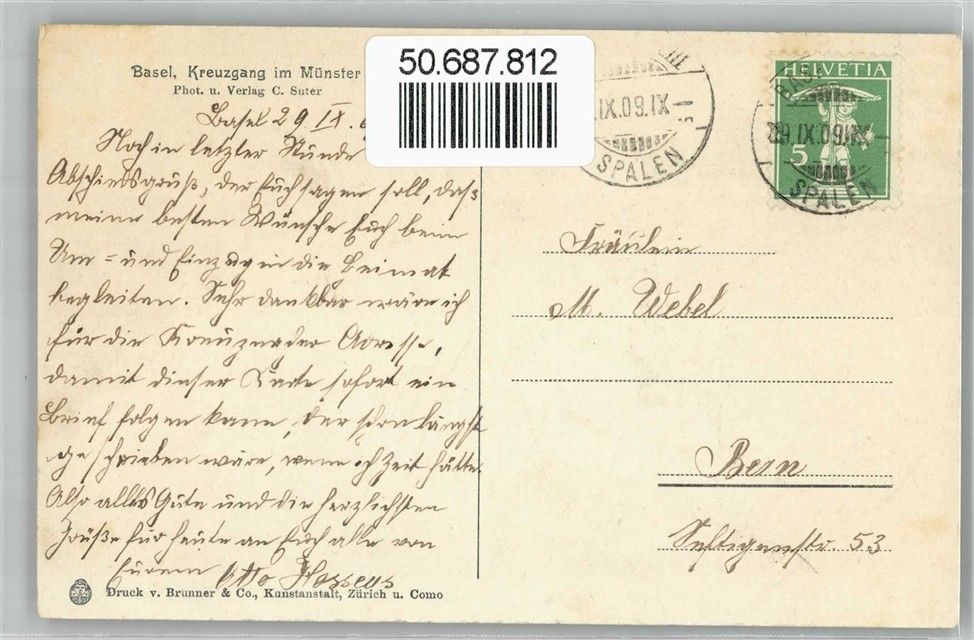 Basel, Kreuzgang im Münster
Phot. u. Verlag C. Suter
50.687.812
Basel 29 IX.
Noch in letzter Stunde
Abschiedsgruß, der Euch sagen soll, daß
meine besten Wünsche Euch beim
Um- und Einzug in die Heimat
begleiten. Sehr dankbar wäre ich
für die Kreuznacher Adresse,
damit dieser Karte sofort ein
Brief folgen kann, der schon längst
geschrieben wäre, wenn ich Zeit hätte.
Also alles Gute und die herzlichsten
Grüße für heute an Euch alle von
Eurem Otto
Druck v. Brunner & Co., Kunstanstalt, Zürich u. Como
IX.09.IX
SPALEN
HELVETIA
5
BAS
29.IX.09.IX
SPALEN
Fräulein
M. Webel
Bern
Seftigenstr. 53